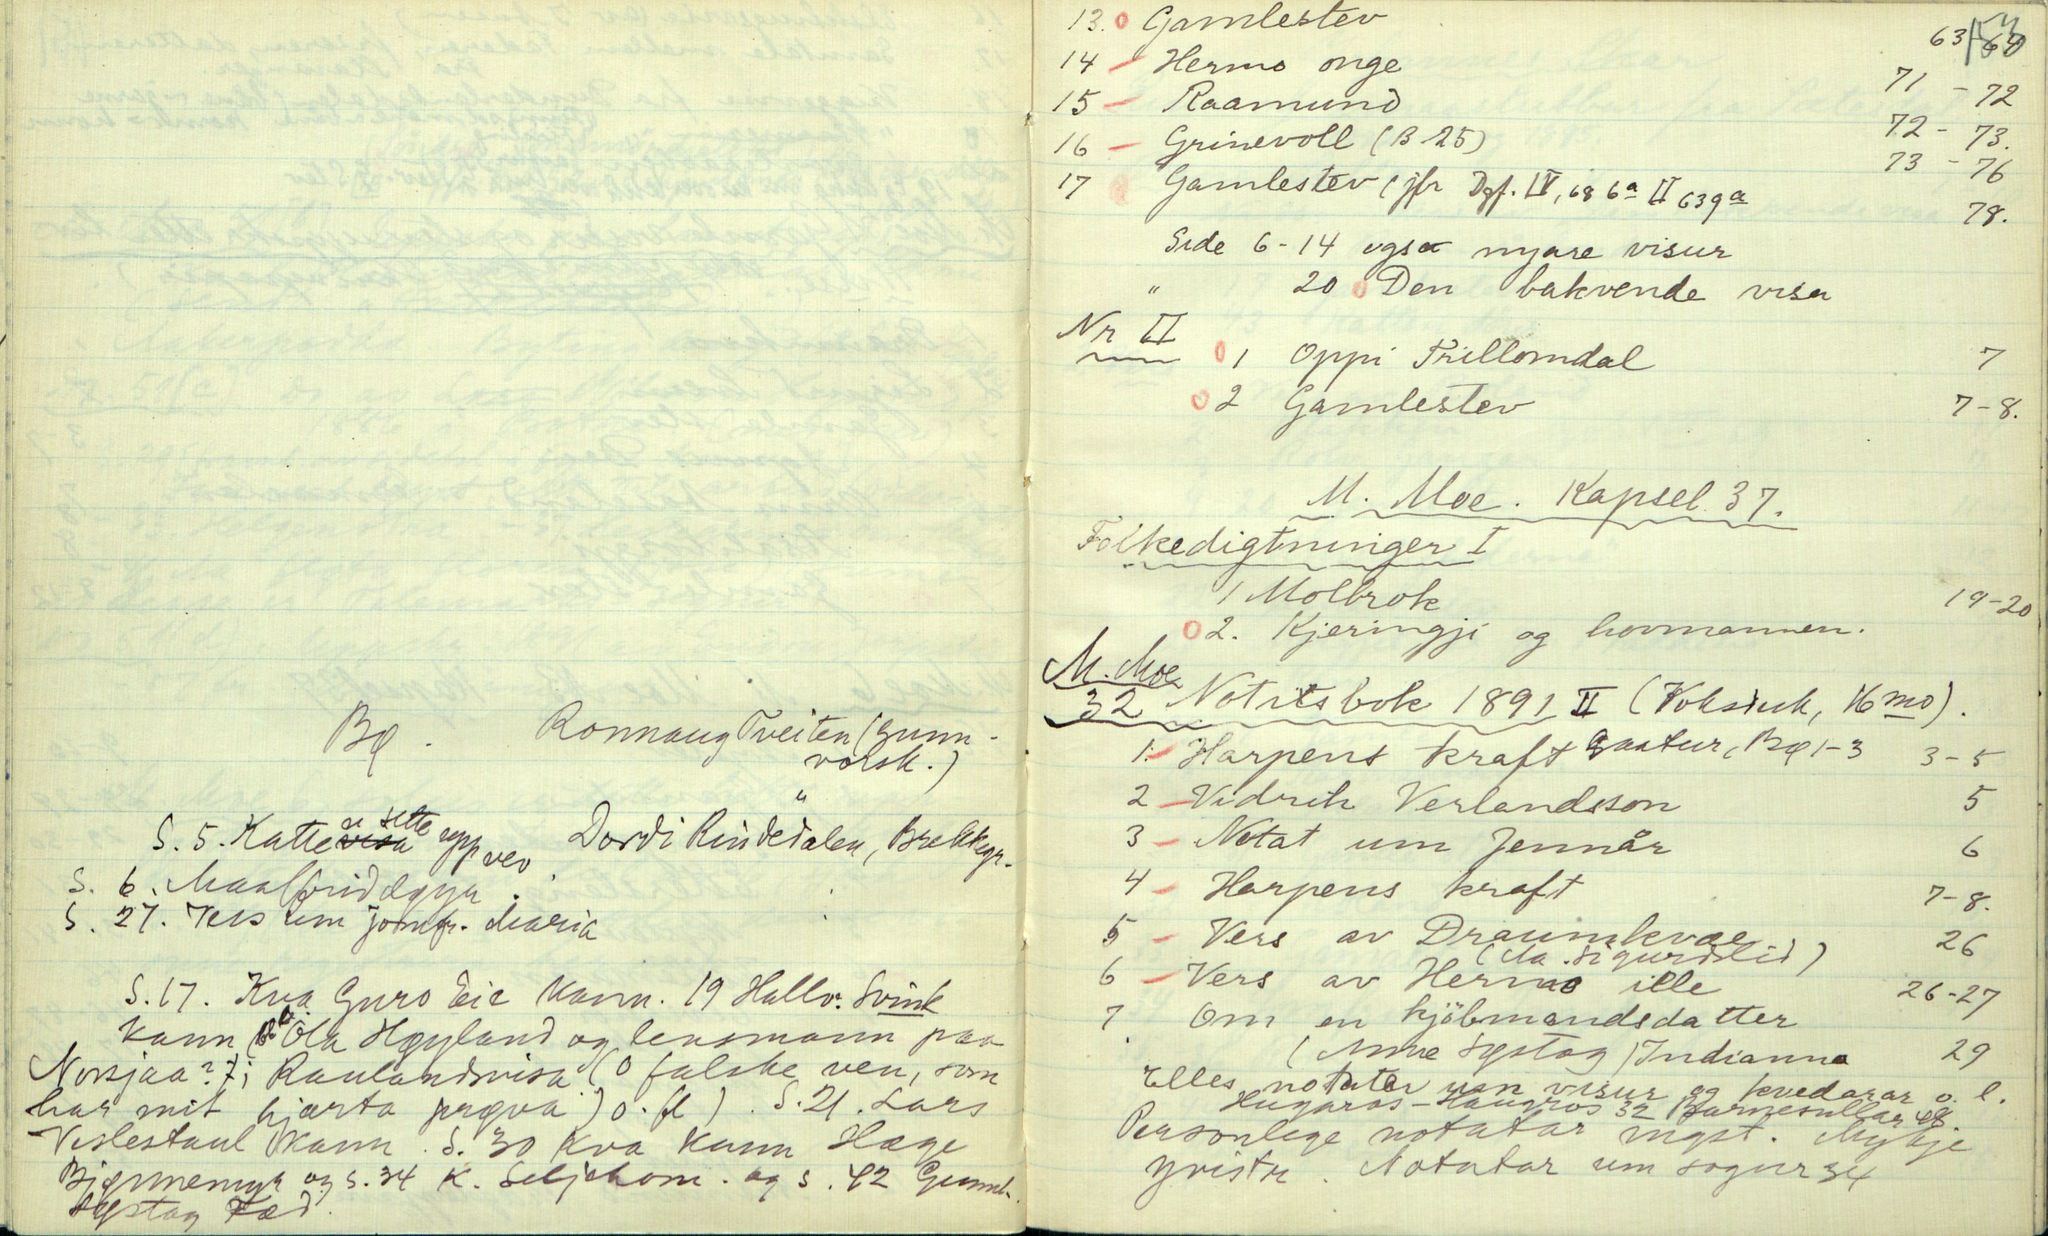 Bø. Ronnaug Tveiten (Gunn-
volsk.)
S. 5. Katte ei sette upp vev Dordi Rindedalen, Brekkegr.
S. 6. Maalfrid
S. 27. Vers um jomfr. Maria
S. 17. Kva Guro Eie kann. 19 Hallv. Svink
kann (Ola Høyland og lensmann paa
Norsjaa? i Raulandsvisa (O falske ven, som
har mit hjarta prøva) o. fl). S. 21. Lars
Veslestaul kann. S. 30 kva kann Hæge
Bjønnemyr og s. 34 K. Seljehom. og s. 42 Gunnh.
Systog kvæd.
153
13. Gamlestev 63-64
14 - Hermo onge 71-72
15 - Raamund 72-73.
16 - Grinevoll (B 25) 73-76
17 Gamlestev (jfr Dgf. IV, 686a II 639a 78.
Side 6-14 ogsa nyare visur
" 20 Den bakvende visa
Nr II
1 Oppi Trillomdal 7
2 Gamlestev 7-8.
M. Moe. Kapsel 37.
Folkedigtninger I
1 Molbrok 19-20
2. Kjeringji og hovmannen.
M. Moe
32 Notitsbok 1891 II (Voksduk, 16mo).
1. - Harpens kraft Gautur, Bø 1-3 3-5
2 - Vidrik Verlandsson 5
3 - Notat um Jennår 6
4 - Harpens kraft 7-8.
5 - Vers av Draumkvæe 26
(Aa. Sigurdslid)
6 - Vers av Hermo ille 26-27
7 Om en kjöbmandsdatter
(Anne Systog) Indianna 29
Elles notatar um visur og kvedarar o. l.
Hugaros - Haugros 32 Barnesullar 48.
Personlege notatar mgst. Mykje
yvistr. Notatar um sogur 34